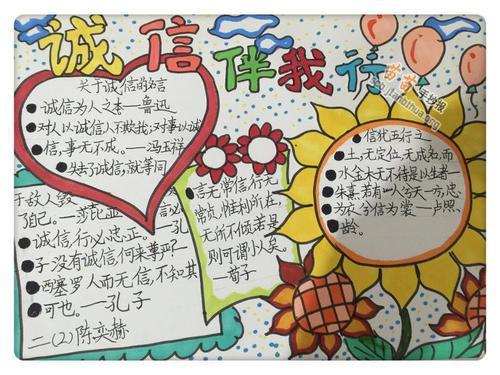 诚信伴我行
关于诚信的名言
诚信为人之本—鲁迅
对人以诚信人不欺我;对事以诚
信,事无不成。—冯玉祥
失去了诚信,就等同
于敌人毁
了自己。—莎比亚
诚信,行必忠正。—孔
子没有诚信,何来尊严?
西塞罗人而无信,不知其
可也。—孔子
二(2)陈奕赫
言无常信,行无
常贞,惟利所在,
无所不倾若是
则可谓小人矣。
—荀子
信犹五行之
土,无定位,无成名,而
水金木无不待是以生者—
朱熹.若有一人
为衣,兮信为裳—卢照
龄。